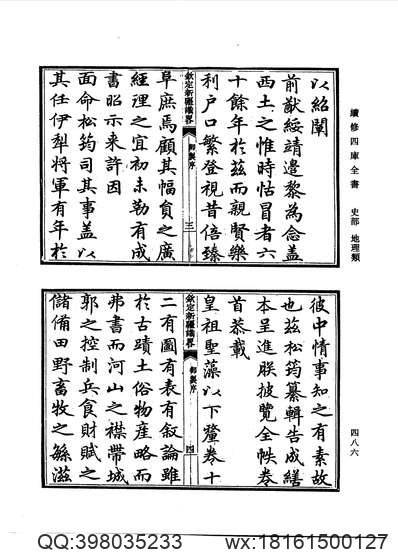 續修四庫全書 史部 地理類
四八六
以紹闡
前猷綏靖邊黎為念蓋
西土之惟時怙冒者六
十餘年於茲而親賢樂
利戶口繁登視昔倍臻
欽定新疆識畧 御製序 三
阜庶焉顧其幅員之廣
經理之宜初未勒有成
書昭示來許因
面命松筠司其事蓋以
其任伊犁將軍有年於
彼中情事知之有素故
也茲松筠纂輯告成繕
本呈進朕披覽全帙卷
首恭載
皇祖聖藻以下釐卷十
欽定新疆識畧 御製序 四
二有圖有表有敘論雖
於古蹟土俗物產略而
弗書而河山之襟帶城
郭之控制兵食財賦之
儲備田野畜牧之緐滋
QQ:398035233 wx:18161500127